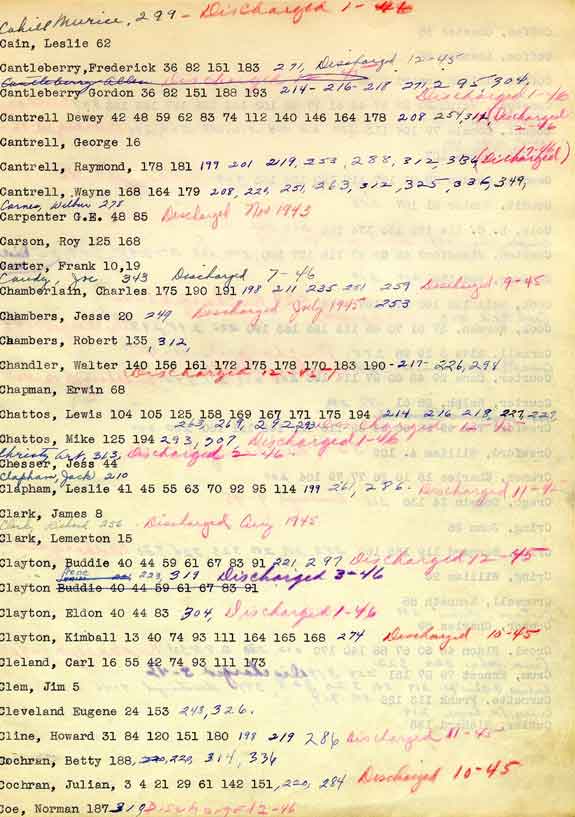 Cahill Murice, 299 - Discharged 1-46
Cain, Leslie 62
Cantleberry, Frederick 36 82 151 183 271, Discharged 12-45
Cantleberry Allen
Cantleberry Gordon 36 82 151 188 193 214-216-218 271, 295, 304, Discharged 1-46
Cantrell Dewey 42 48 59 62 83 74 112 140 146 164 178 208 254, 312 (Discharged 2-46
Cantrell, George 16
Cantrell, Raymond, 178 181 199 201 219, 253, 288, 312 336 (Discharged) 12-46
Cantrell, Wayne 168 164 179 208, 225, 251, 263, 312, 325, 336, 349,
Carnes, Wilbur 278
Carpenter G.E. 48 85 Discharged Nov 1943
Carson, Roy 125 168
Carter, Frank 10,19
Caudy, Joe. 343 Discharged 7-46
Chamberlain, Charles 175 190 191 198 211 235 251 259 Discharged 9-45
Chambers, Jesse 20 249 Discharged July 1945 253
Chambers, Robert 135, 312,
Chandler, Walter 140 156 161 172 175 178 170 183 190 -217- 226, 298
Discharged 12-45
Chapman, Erwin 68
Chattos, Lewis 104 105 125 158 169 167 171 175 194 214 216 218, 227, 229,
263, 269, 292, 293 Discharged 12-45
Chattos, Mike 125 194 293, 307, Discharged 1-46
Christy Art, 313, Discharged 2-46
Chesser, Jess 44
Clapham Jack 210
Clapham, Leslie 41 45 55 63 70 92 95 114 199 261, 286. Discharged 11-45
Clark, James 8
Clark, Richard 256 - Discharged, Aug 1945
Clark, Lemerton 15
Clayton, Buddie 40 44 59 61 67 83 91 221, 297 Discharged 12-45
223, 319 Discharged 3-46
Clayton Buddie 40 44 59 61 67 83 91
Clayton, Eldon 40 44 83 304, Discharged 1-46
Clayton, Kimball 13 40 74 93 111 164 165 168 274 Discharged 10-45
Cleland, Carl 16 55 42 74 93 111 173
Clem, Jim 5
Cleveland Eugene 24 153 243, 326.
Cline, Howard 31 84 120 151 180 198 219 286 Discharged 11-45
Cochran, Betty 188, 220, 228, 314, 336
Cochran, Julian, 3 4 21 29 61 142 151, 220, 284 Discharged 10-45
Coe, Norman 187 319 Discharge 12-46